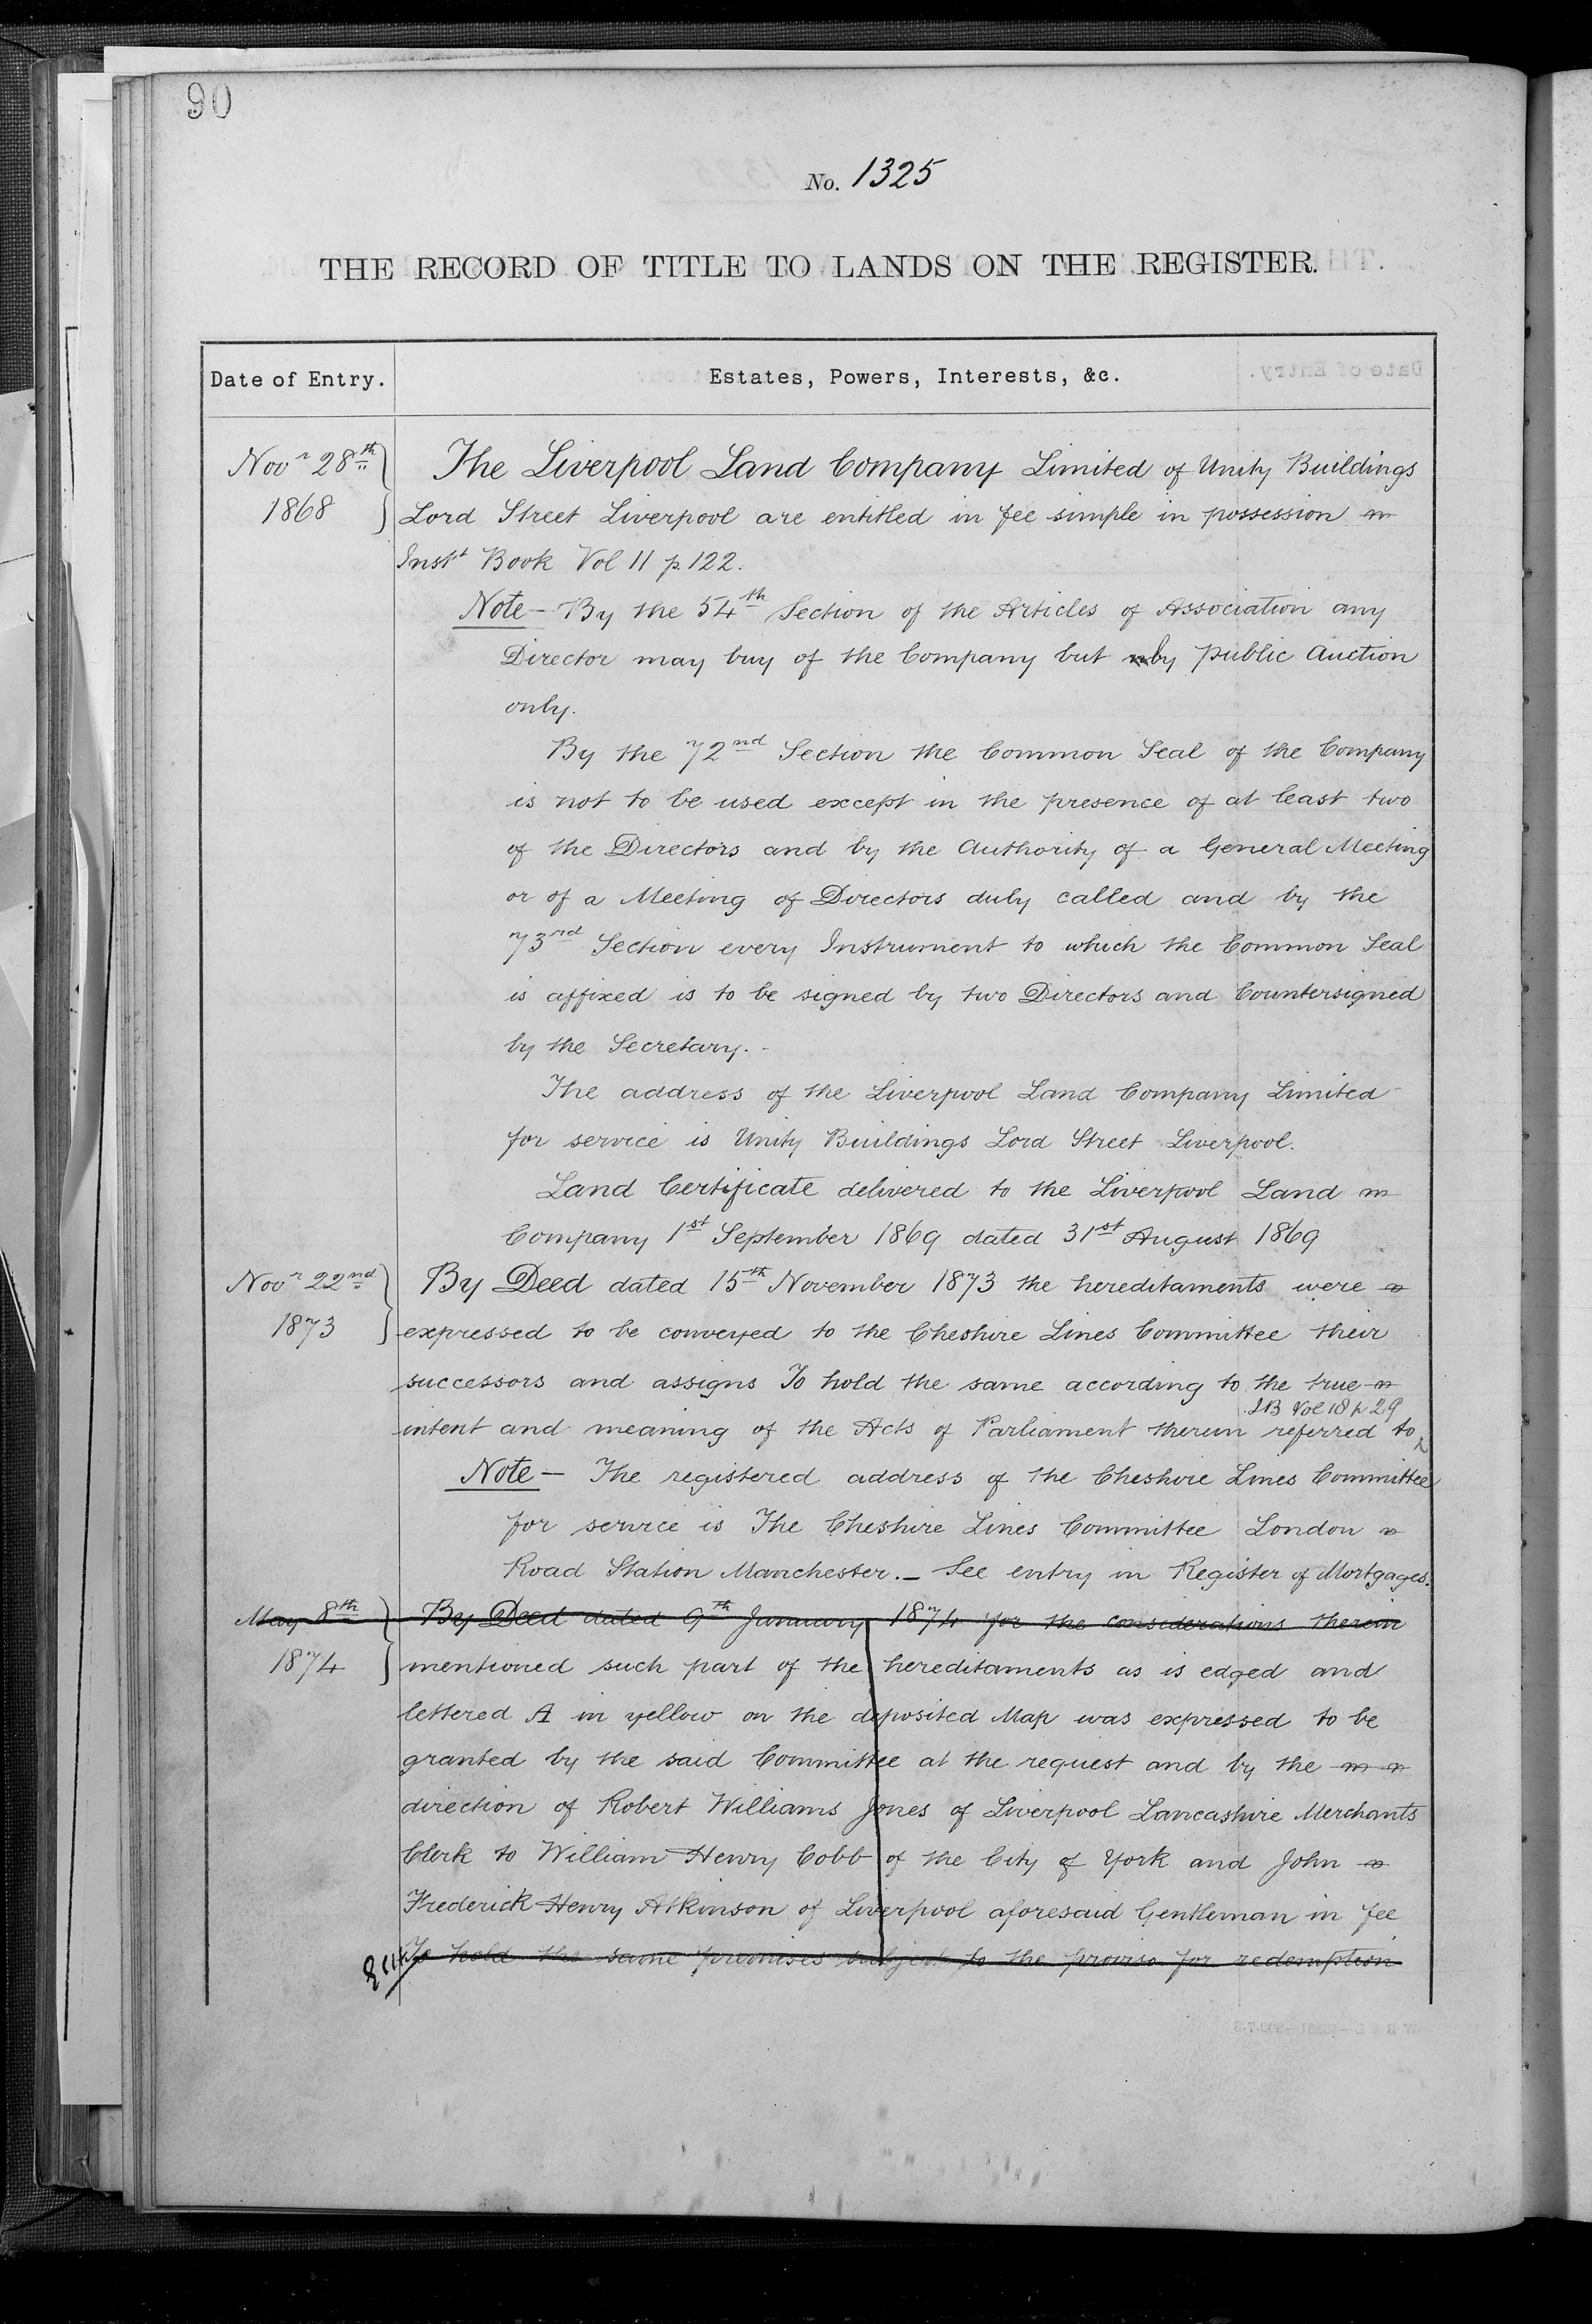 90
No. 1325
THE RECORD OF TITLE TO LANDS ON THE REGISTER.
Date of Entry.
Estates, Powers, Interests, &c.
Novr 28th
1868
The Liverpool Land Company Limited of Unity Buildings
Lord Street Liverpool are entitled in fee simple in possession
Inst Book Vol 11 p. 122.
Note - By the 54th Section of the Articles of Association any
Director may buy of the Company but by public Auction
only.
By the 72nd Section the Common Seal of the Company
is not to be used except in the presence of at least two
of the Directors and by the Authority of a General Meeting
or of a Meeting of Directors duly called and by the
73rd Section every Instrument to which the Common Seal
is affixed is to be signed by two Directors and Countersigned
by the Secretary. -
The address of the Liverpool Land Company Limited
for service is Unity Buildings Lord Street Liverpool.
Land Certificate delivered to the Liverpool Land
Company 1st September 1869 dated 31st August 1869
Novr 22nd
1873
By Deed dated 15th November 1873 the hereditaments were
expressed to be conveyed to the Cheshire Lines Committee their
successors and assigns To hold the same according to the true
I B Vol 18 p 29
intent and meaning of the Acts of Parliament therein referred to
Note - The registered address of the Cheshire Lines Committee
for service is The Cheshire Lines Committee London
Road Station Manchester. - See entry in Register of Mortgages.
May 8th
1874
By Deed dated 9th January 1874 for the considerations therein
mentioned such part of the hereditaments as is edged and
lettered A in yellow on the deposited Map was expressed to be
granted by the said Committee at the request and by the
direction of Robert Williams Jones of Liverpool Lancashire Merchants
Clerk to William Henry Cobb of the City of York and John
Frederick Henry Atkinson of Liverpool aforesaid Gentleman in fee
To hold the same premises subject to the proviso for redemption